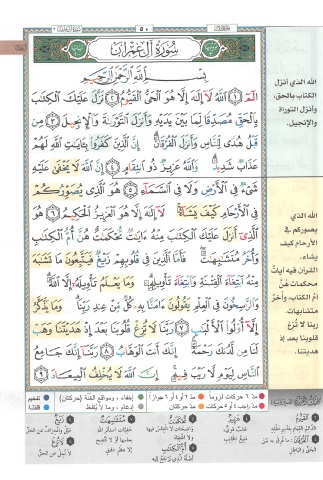 ٥٠
سُورَةُ آلِ عِمْرَانَ
بِسْمِ اللَّهِ الرَّحْمَٰنِ الرَّحِيمِ
الٓمٓ ١ اللَّهُ لَا إِلَٰهَ إِلَّا هُوَ الْحَيُّ الْقَيُّومُ ٢ نَزَّلَ عَلَيْكَ الْكِتَابَ
بِالْحَقِّ مُصَدِّقًا لِمَا بَيْنَ يَدَيْهِ وَأَنْزَلَ التَّوْرَاةَ وَالْإِنْجِيلَ ٣ مِنْ
قَبْلُ هُدًى لِلنَّاسِ وَأَنْزَلَ الْفُرْقَانَ إِنَّ الَّذِينَ كَفَرُوا بِآيَاتِ اللَّهِ لَهُمْ
عَذَابٌ شَدِيدٌ وَاللَّهُ عَزِيزٌ ذُو انْتِقَامٍ ٤ إِنَّ اللَّهَ لَا يَخْفَىٰ عَلَيْهِ
شَيْءٌ فِي الْأَرْضِ وَلَا فِي السَّمَاءِ ٥ هُوَ الَّذِي يُصَوِّرُكُمْ
فِي الْأَرْحَامِ كَيْفَ يَشَاءُ لَا إِلَٰهَ إِلَّا هُوَ الْعَزِيزُ الْحَكِيمُ ٦ هُوَ
الَّذِي أَنْزَلَ عَلَيْكَ الْكِتَابَ مِنْهُ آيَاتٌ مُحْكَمَاتٌ هُنَّ أُمُّ الْكِتَابِ
وَأُخَرُ مُتَشَابِهَاتٌ فَأَمَّا الَّذِينَ فِي قُلُوبِهِمْ زَيْغٌ فَيَتَّبِعُونَ مَا تَشَابَهَ
مِنْهُ ابْتِغَاءَ الْفِتْنَةِ وَابْتِغَاءَ تَأْوِيلِهِ وَمَا يَعْلَمُ تَأْوِيلَهُ إِلَّا اللَّهُ
وَالرَّاسِخُونَ فِي الْعِلْمِ يَقُولُونَ آمَنَّا بِهِ كُلٌّ مِنْ عِنْدِ رَبِّنَا وَمَا يَذَّكَّرُ
إِلَّا أُولُو الْأَلْبَابِ ٧ رَبَّنَا لَا تُزِغْ قُلُوبَنَا بَعْدَ إِذْ هَدَيْتَنَا وَهَبْ
لَنَا مِنْ لَدُنْكَ رَحْمَةً إِنَّكَ أَنْتَ الْوَهَّابُ ٨ رَبَّنَا إِنَّكَ جَامِعُ
النَّاسِ لِيَوْمٍ لَا رَيْبَ فِيهِ إِنَّ اللَّهَ لَا يُخْلِفُ الْمِيعَادَ ٩
الله الذي أنزل
الكتاب بالحق،
وأنزل التوراة
والإنجيل.
الله الذي
يصوركم في
الأرحام كيف
يشاء.
القرآن فيه آيات
محكمات هُنّ
أم الكتاب، وأخر
متشابهات.
ربنا لا تُزغ
قلوبنا بعد إذ
هديتنا.
مد ٦ حركات لزوماً
مد ٢ أو ٤ أو ٦ جوازاً
إخفاء، ومواقع الغُنّة (حركتان)
تفخيم
مد واجب ٤ أو ٥ حركات
مد حركتان
إدغام، وما لا يُلفظ
قلقلة